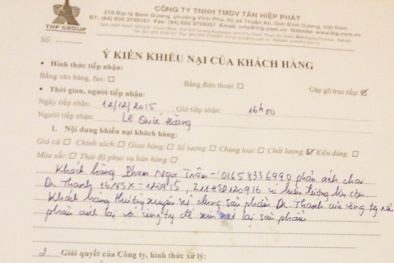 CÔNG TY TNHH TMDV TÂN HIỆP PHÁT
219 Đại lộ Bình Dương, phường Vĩnh Phú, thị xã Thuận An, tỉnh Bình Dương, Việt Nam
THP GROUP
Số:
Ý KIẾN KHIẾU NẠI CỦA KHÁCH HÀNG
• Hình thức tiếp nhận:
Bằng văn bản, fax: Bằng điện thoại: Gặp gỡ trực tiếp
• Thời gian, người tiếp nhận:
Ngày tiếp nhận: 12/12/2015 Giờ tiếp nhận: 16h00
Người tiếp nhận: LÊ Quốc
1. Nội dung khiếu nại khách hàng:
Giá cả Chính sách Giao hàng Số lượng Chủng loại Chất lượng Kiểu dáng
Màu sắc: Thái độ phục vụ bán hàng:
Khách hàng Phạm Ngọc Trân - 01658336990 phản ánh chai
Dr Thanh có hiện tượng
Khách hàng thường xuyên sử dụng sản phẩm Dr Thanh của công ty nên
phản ánh lại với công ty để xem lại sản phẩm
2. Giải quyết của Công ty, hình thức xử lý: